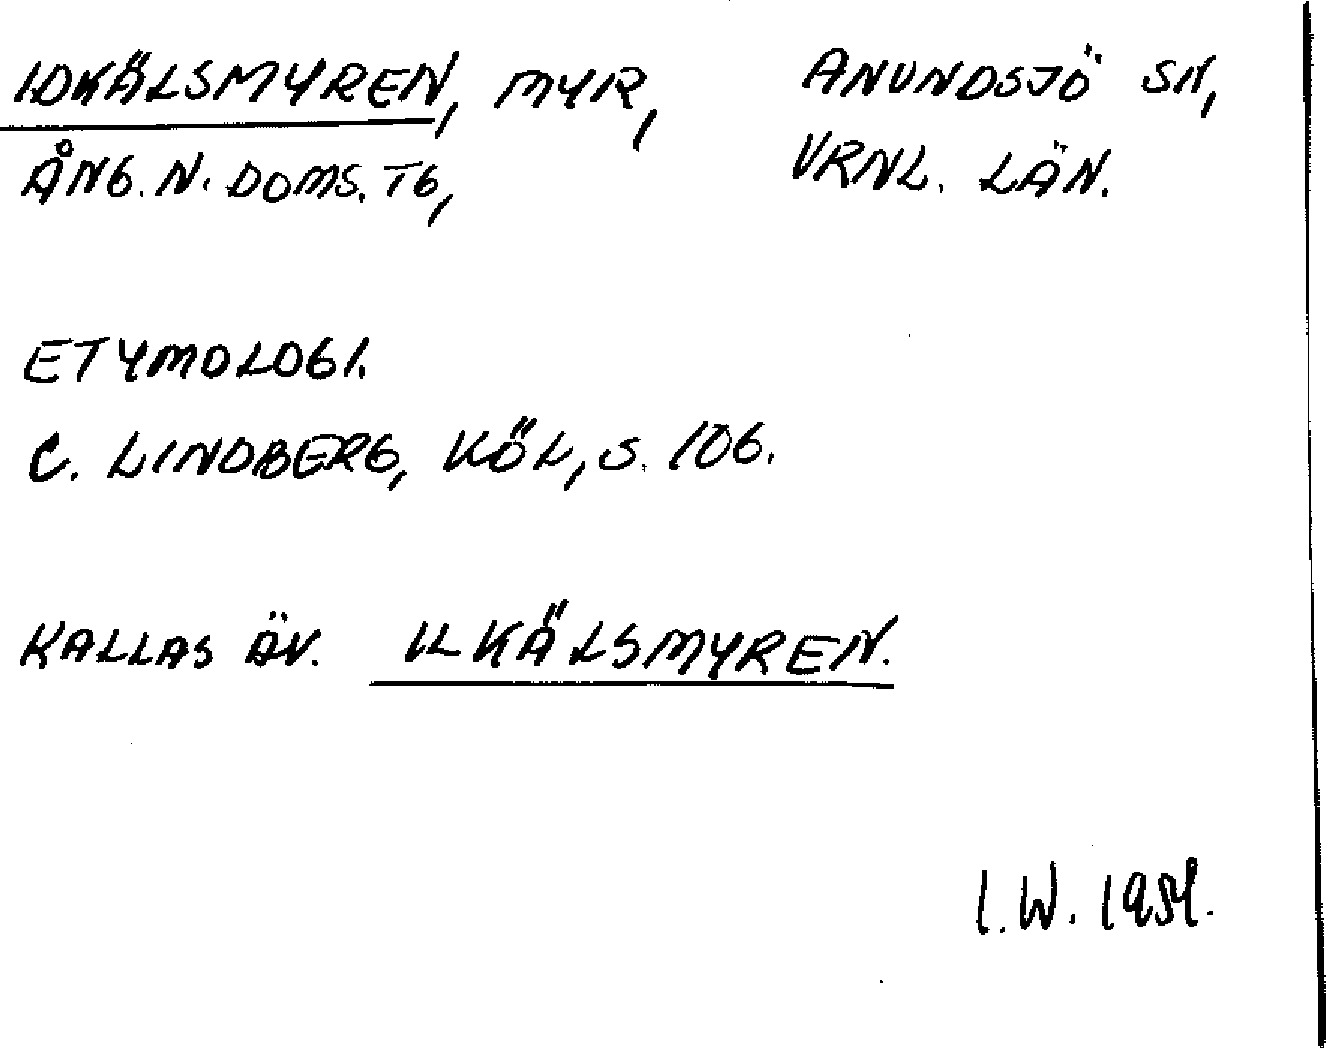 IDKÄLSMYREN, MYR, ANUNDSJÖ SN,
ÅNG. N. DOMS. TG, VRNL. LÄN.
ETYMOLOGI.
C. LINDBERG, KÖL, S. 106.
KALLAS ÄV. ILKÄLSMYREN.
I.W. 1954.